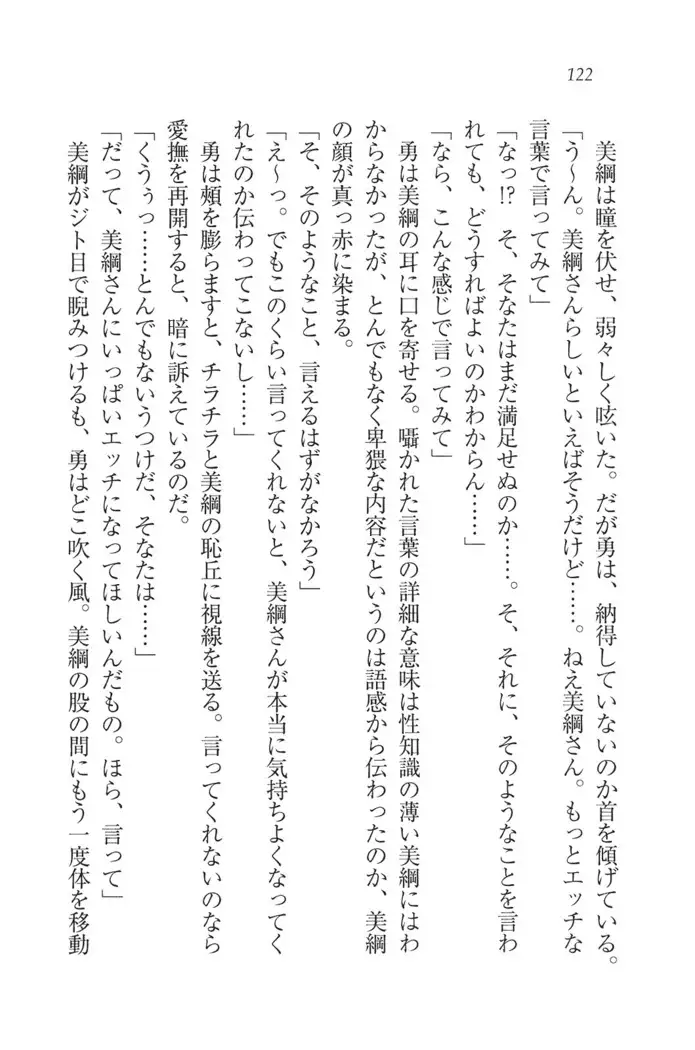 122
美綱は瞳を伏せ、弱々しく呟いた。だが勇は、納得していないのか首を傾げている。
「う〜ん。美綱さんらしいといえばそうだけど……。ねえ美綱さん。もっとエッチな
言葉で言ってみて」
「なっ!?　そ、そなたはまだ満足せぬのか……。そ、それに、そのようなことを言わ
れても、どうすればよいのかわからん……」
「なら、こんな感じで言ってみて」
勇は美綱の耳に口を寄せる。囁かれた言葉の詳細な意味は性知識の薄い美綱にはわ
からなかったが、とんでもなく卑猥な内容だというのは語感から伝わったのか、美綱
の顔が真っ赤に染まる。
「そ、そのようなこと、言えるはずがなかろう」
「え〜っ。でもこのくらい言ってくれないと、美綱さんが本当に気持ちよくなってく
れたのか伝わってこないし……」
勇は頬を膨らますと、チラチラと美綱の恥丘に視線を送る。言ってくれないのなら
愛撫を再開すると、暗に訴えているのだ。
「くうぅっ……とんでもないうつけだ、そなたは……」
「だって、美綱さんにいっぱいエッチになってほしいんだもの。ほら、言って」
美綱がジト目で睨みつけるも、勇はどこ吹く風。美綱の股の間にもう一度体を移動